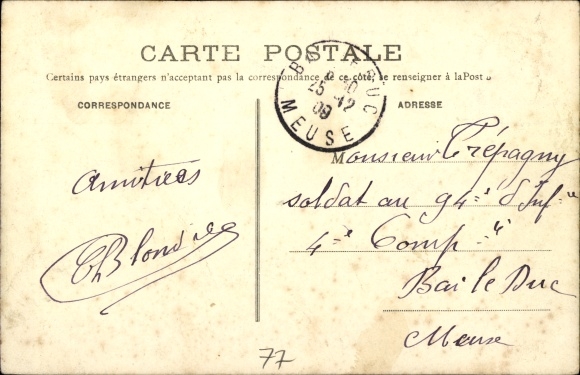 CARTE POSTALE
Certains pays étrangers n'acceptant pas la correspondance de ce côté, se renseigner à la Poste
CORRESPONDANCE
ADRESSE
BAR-LE-DUC
25 12
09
MEUSE
Monsieur Trépagny
soldat au 94e d'Infie
4e Comp ie
Bar le Duc
Meuse
Amitiés
Ch Blond
77